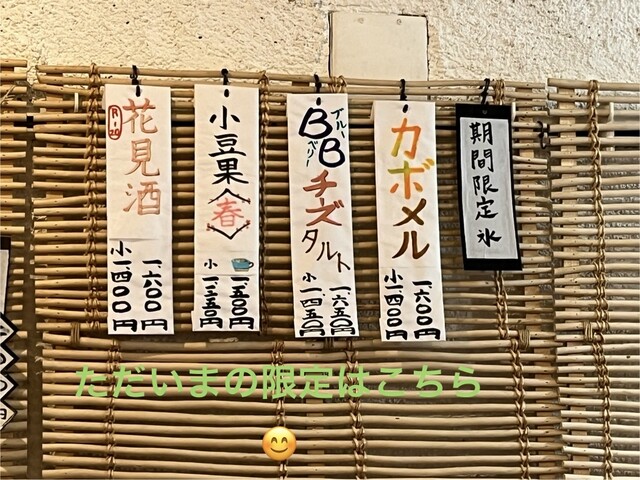 期間限定氷
カボメル
一、六〇〇円
小一、四〇〇円
ブルーベリー
BBチーズタルト
一、六五〇円
小一、四五〇円
小豆果〈春〉
一、五〇〇円
小一、三五〇円
花見酒
R-20
一、六〇〇円
小一、四〇〇円
ただいまの限定はこちら
😊